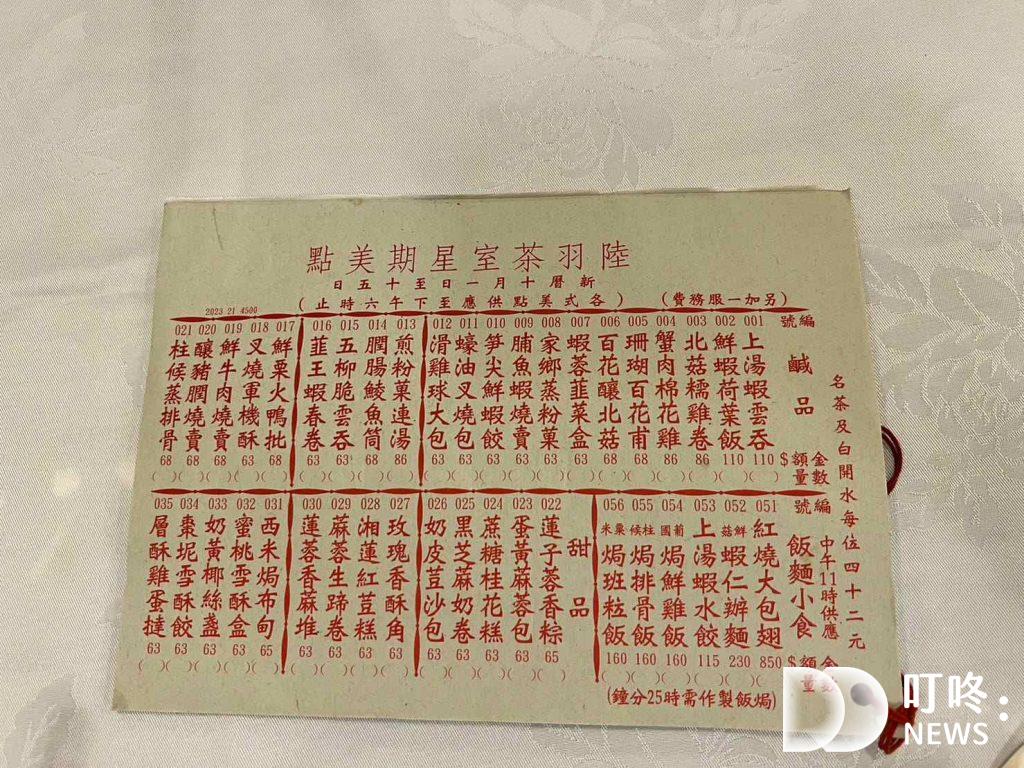 陸羽茶室星期美點
新曆十月一日至十五日
(另加一服務費)
(各式美點供應至下午六時止)
2023 21 4500
編號
鹹品
金額$
數量
001 上湯蝦雲吞 110
002 鮮蝦荷葉飯 110
003 北菇糯雞卷 86
004 蟹肉棉花雞 86
005 珊瑚百花甫 68
006 百花釀北菇 68
007 蝦蓉韮菜盒 63
008 家鄉蒸粉菓 63
009 脯魚蝦燒賣 63
010 笋尖鮮蝦餃 63
011 蠔油叉燒包 63
012 滑雞球大包 63
013 煎粉菓連湯 86
014 膶腸鯪魚筒 68
015 五柳脆雲吞 63
016 韮王蝦春卷 63
017 鮮栗火鴨批 68
018 叉燒軍機酥 68
019 鮮牛肉燒賣 68
020 釀豬膶燒賣 68
021 柱候蒸排骨 68
編號
飯麵小食
中午11時供應
金額$
數量
051 紅燒大包翅 850
052 鮮菇蝦仁辦麵 230
053 上湯蝦水餃 115
054 葡國焗鮮雞飯 160
055 柱候焗排骨飯 160
056 粟米焗班粒飯 160
(焗飯製作需時25分鐘)
甜品
022 蓮子蓉香粽 65
023 蛋黃蔴蓉包 63
024 蔗糖桂花糕 63
025 黑芝蔴奶卷 63
026 奶皮荳沙包 63
027 玫瑰香酥角 63
028 湘蓮紅荳糕 63
029 蔴蓉生蹄卷 63
030 蓮蓉香蔴堆 63
031 西米焗布甸 65
032 蜜桃雪酥盒 63
033 奶黃椰絲盞 63
034 棗坭雪酥餃 63
035 層酥雞蛋撻 63
名茶及白開水每位四十二元
叮咚:
NEWS